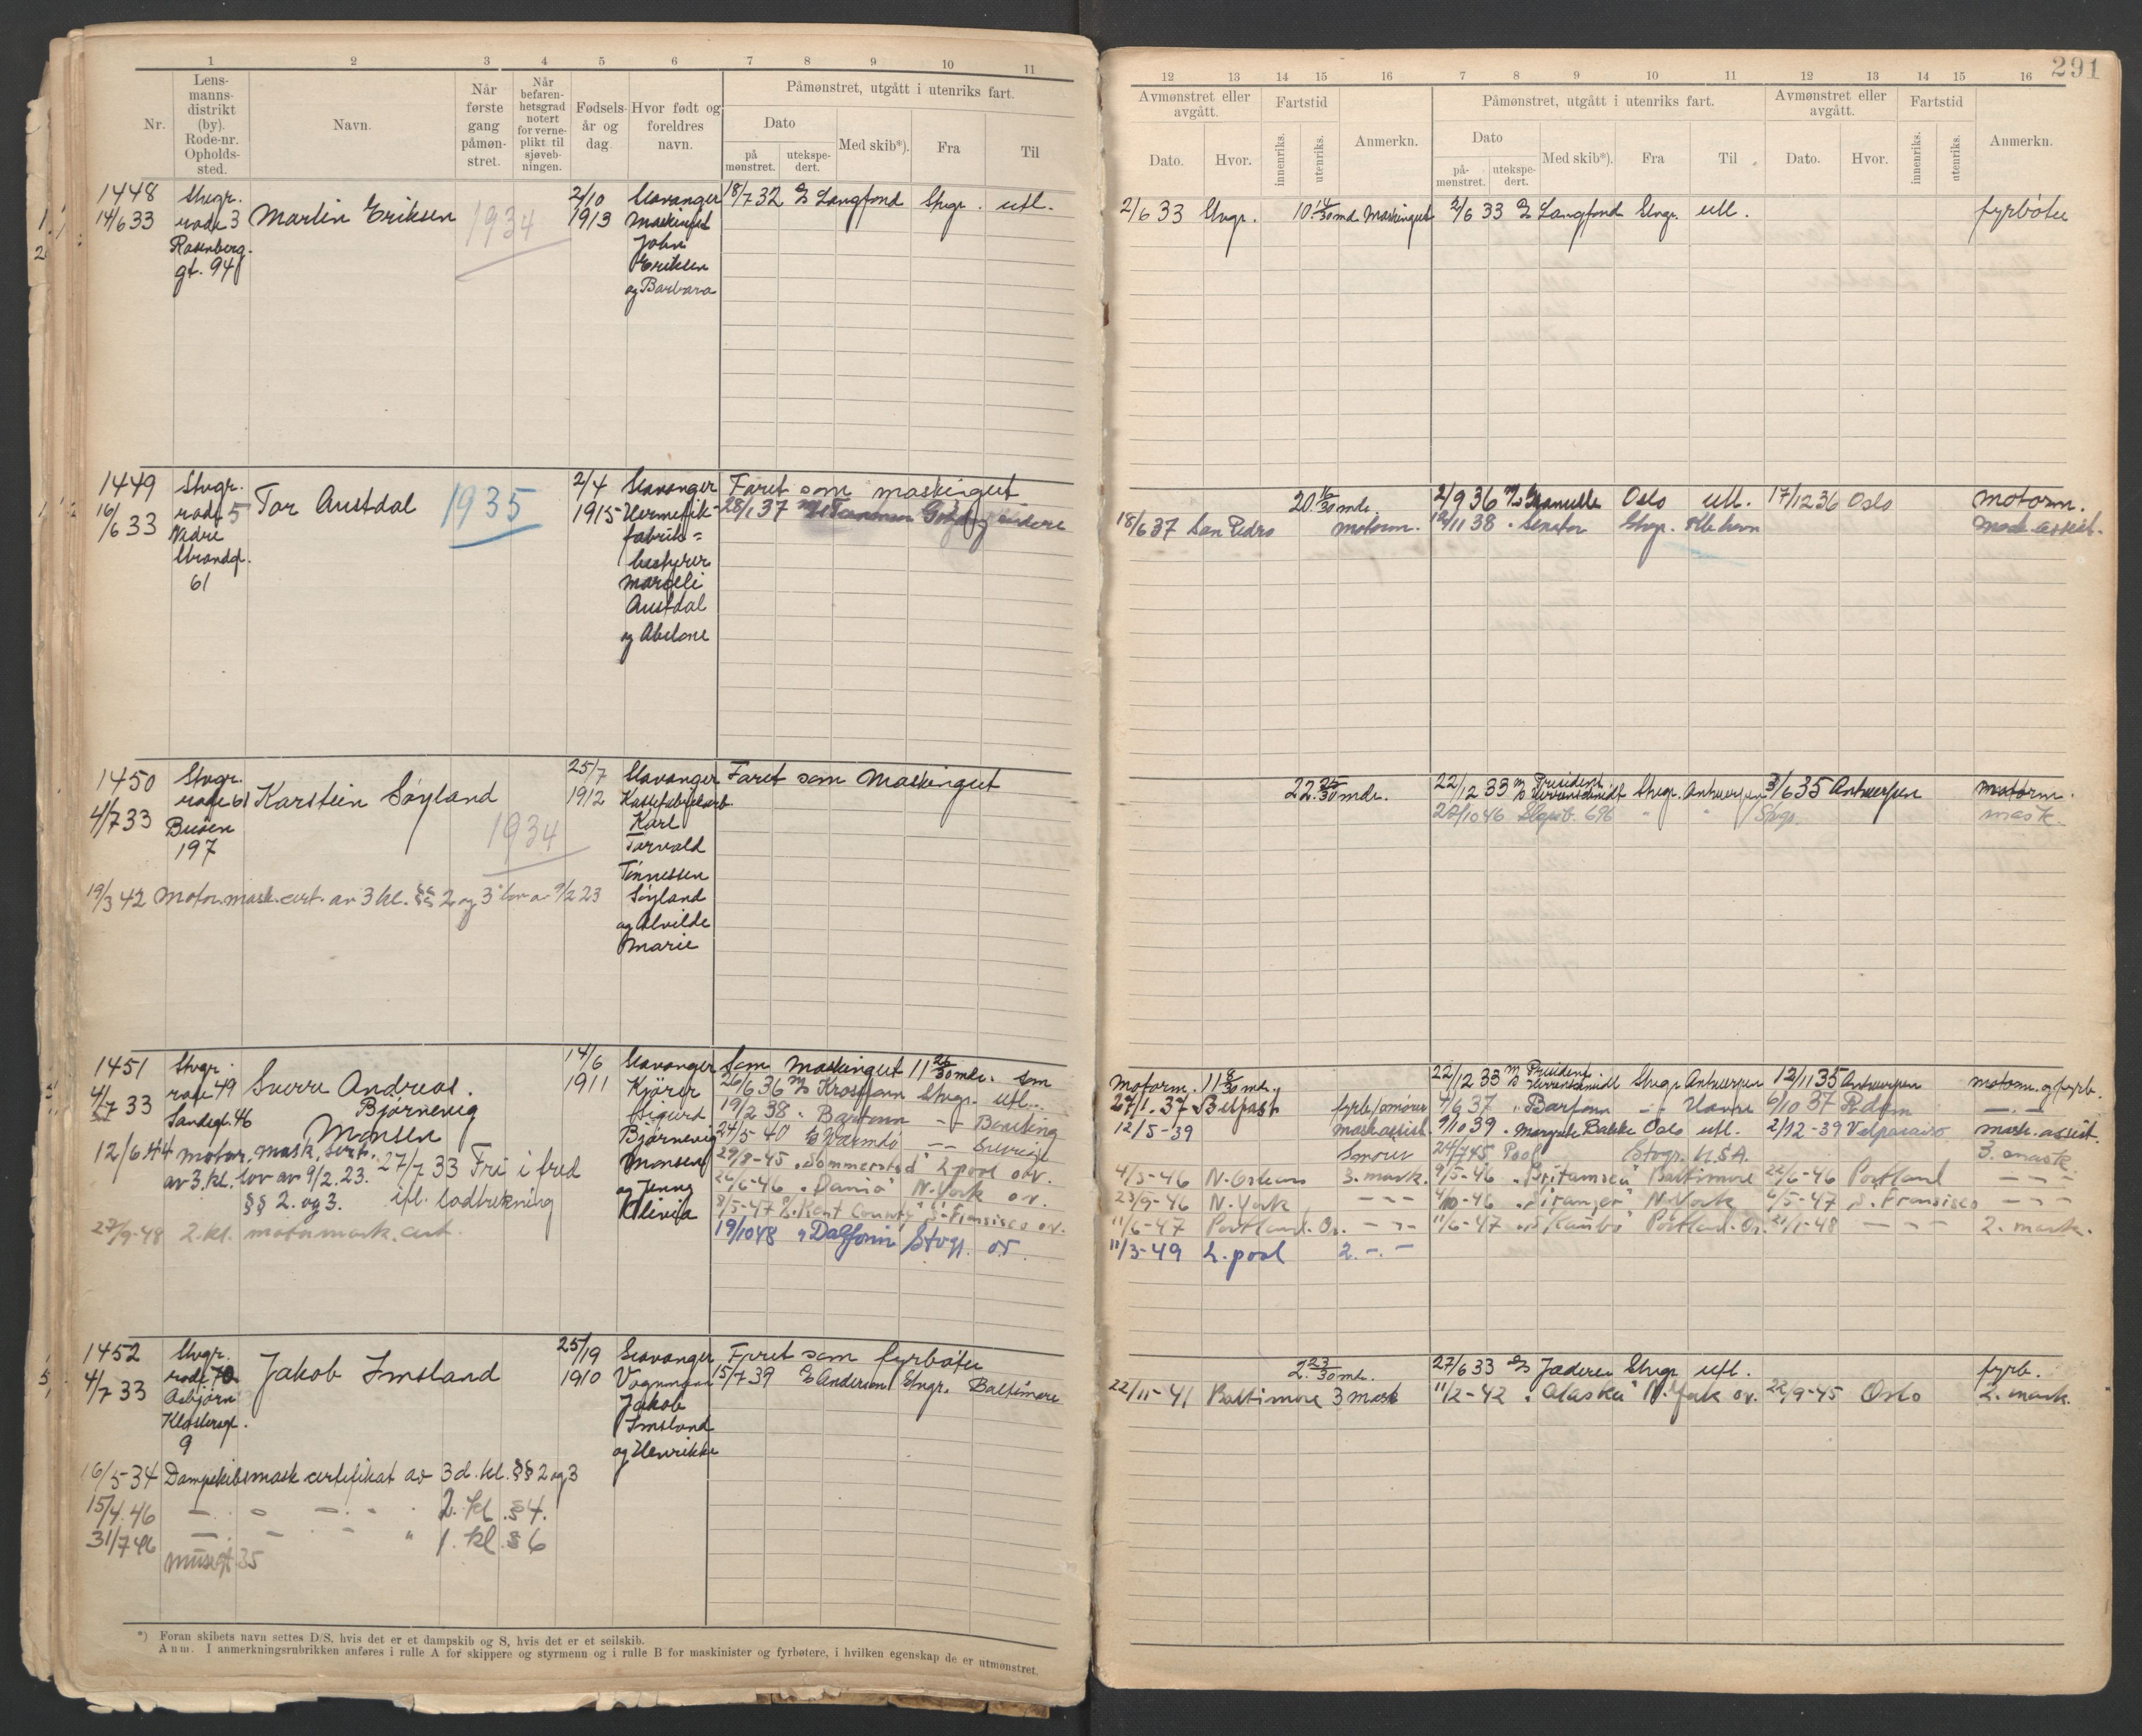 1 2 3 4 5 6 7 8 9 10 11
Nr. Lensmannsdistrikt (by). Rode-nr. Opholdssted. Navn. Når første gang påmønstret. Når befarenhetsgrad notert for verneplikt til sjøvebningen. Fødselsår og dag. Hvor født og foreldres navn. Påmønstret, utgått i utenriks fart.
Dato
på mønstret. utekspedert. Med skib*). Fra Til
1448 Stvgr. 2/10 Stavanger 18/7 32 Langfond Stvgr. utl.
14/6 33 rode 3 Martin Eriksen 1934 1913 Maskinist
Rosenberg John
gt. 94 Eriksen
og Barbara
1449 Stvgr. 2/4 Stavanger Faret som maskingut
16/6 33 rode 5 Tor Austdal 1935 1915 Hermetik- 28/1 37
Nedre fabrik=
Strandgt. bestyrer
61 Marseli
Austdal
og Abelone
1450 Stvgr. 25/7 Stavanger Faret som Maskingut
4/7 33 rode 61 Karstein Søyland 1934 1912 Kassefabrikarb.
Buøen Karl
197 Torvald
Tønnessen
19/3 42 Motor.mask.cert. av 3 kl. §§ 2 og 3 lov av 9/2 23 Søyland
og Alvilde
Marie
1451 Stvgr. 14/6 Stavanger Som Maskingut 11 26/30 mdr. som
4/7 33 rode 49 Sverre Andreas 1911 Kjører 26/6 36 M/S Krossfonn Stvgr. utl.
Sandegt. 46 Bjørnevig Sigurd 19/2 38 " Barfonn
Monsen Bjørnevig 24/5 40 Værmdø Sverige
12/6 44 motor.mask.sert. 27/7 33 Fri i fred Monsen 29/8-45 "Sommerstad" L.pool o.v.
av 3. kl. lov av 9/2.23. ifl. lodtrekning og Jenny 26/6-46 "Dania" N.York o.v.
§§ 2. og 3. Olivia 8/5-47 "Kent County" S.Fransisco o.v.
27/9-48 2. kl. motormask.cert. 19/10 48 "Dalfonn" Stvgr. o.v.
1452 Stvgr. 25/19 Stavanger Faret som fyrbøter
4/7 33 rode 70 Jakob Imsland 1910 Vognmann 15/7 39 Anderson Stvgr. Baltimore
Asbjørn Jakob
Klostersgt. Imsland
9 og Henrikke
16/5-34 Dampskibsmask certifikat av 3d. kl. §§ 2 og 3
15/4 46 2. kl. § 4.
31/7 46 1. kl. § 6
Musegt 35
*) Foran skibets navn settes D/S, hvis det er et dampskib og S, hvis det er et seilskib.
Anm. I anmerkningsrubrikken anføres i rulle A for skippere og styrmenn og i rulle B for maskinister og fyrbøtere, i hvilken egenskap de er utmønstret.
291
12 13 14 15 16 7 8 9 10 11 12 13 14 15 16
Avmønstret eller avgått. Fartstid Påmønstret, utgått i utenriks fart. Avmønstret eller avgått. Fartstid
Dato. Hvor. innenriks. utenriks. Anmerkn. Dato påmønstret. utekspedert. Med skib*). Fra Til Dato. Hvor. innenriks. utenriks. Anmerkn.
2/6 33 Stvgr. 10 14/30 md. Maskingut 2/6 33 Langfond Stvgr. utl. fyrbøter
20 16/30 mdr. 2/9 36 Oslo utl. 17/12 36 Oslo motorm.
18/6 37 San Pedro motorm. 19/11 38 " Senator Stvgr. Kbhavn mask.assist.
22 25/30 mdr. 22/12 33 M/S President Stvgr. Antwerpen 3/6 35 Antwerpen motorm.
28/10 46 696 " " Stvgr. mask.
Motorm. 11 8/30 mdr. 22/12 33 M/S President Stvgr Antwerpen 12/11 35 Antwerpen motorm. og fyrb.
27/1. 37 Belfast fyrb/smører 4/6 37 " Barfonn 6/10 37 R.dam
12/5-39 maskassist. 9/10 39 " Margrete Bakke Oslo utl. 2/12-39 Valparaiso mask.assist.
Smører 24/7 45 Pool Stvgr. U.S.A. 3. mask.
4/5-46 N.Orleans 3. mask. 9/5-46 Baltimore 22/6-46 Portland
23/9-46 N.York 4/10-46 "Siranger" N.York 6/5-47 S.Fransisco
11/6-47 Portland. Or. 11/6-47 "Kambo" Portland. Or. 21/1-48 2. mask.
11/3-49 L.pool 2. - -
2 23/30 md. 27/6 33 Jæderen Stvgr utl. fyrb.
22/11-41 Baltimore 3 mask 11/2-42 "Alaska" N.York o.v. 22/9-45 Oslo 2. mask.